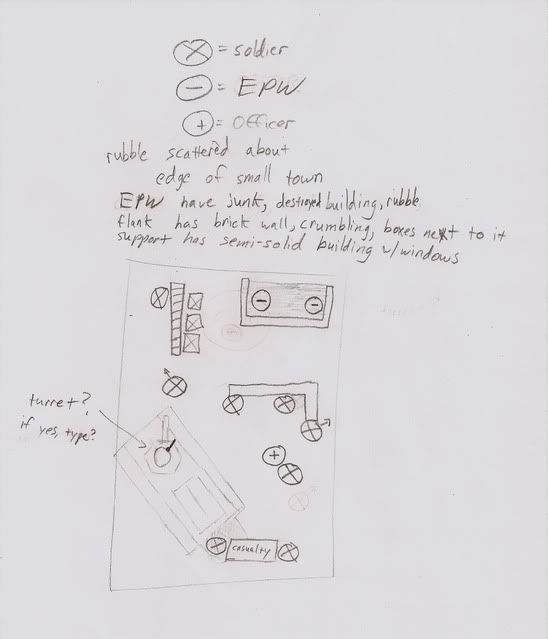 = soldier
= EPW
= Officer
rubble scattered about
edge of small town
EPW have junk, destroyed building, rubble
flank has brick wall, crumbling, boxes next to it
support has semi-solid building w/windows
turret?
if yes, type?
casualty